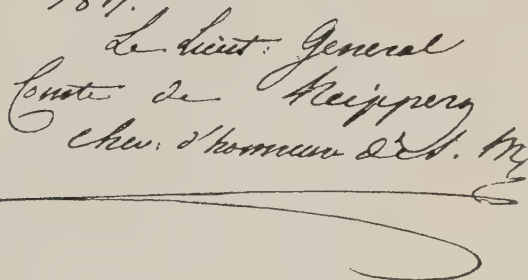 Le Lieut: General
Comte de Neipperg
Chev: d'honneur de S. M